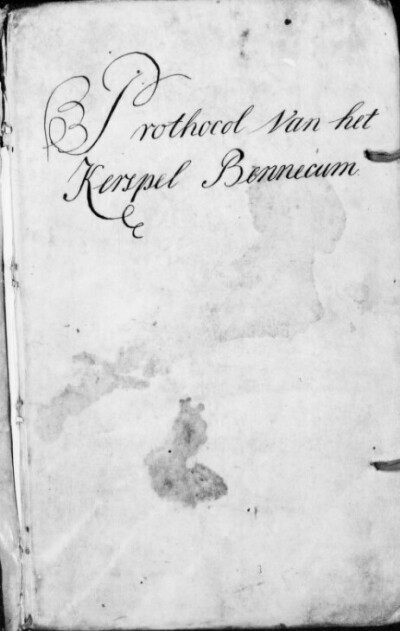 Prothocol Van het
Kerspel Bennecum